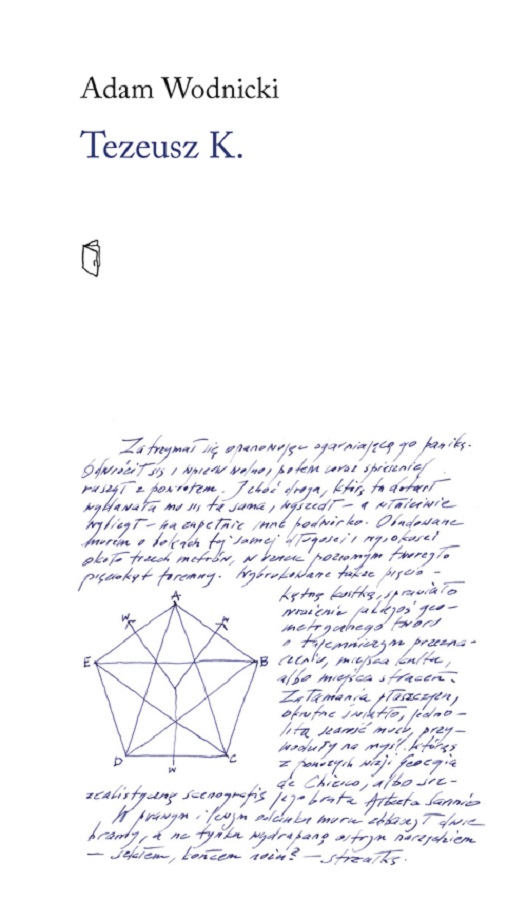 Adam Wodnicki
Tezeusz K.
Zatrzymał się opanowując ogarniającą go panikę.
Odwrócił się i najpierw wolno, potem coraz spieszniej
ruszył z powrotem. I choć droga, którą tu dotarł
wydawała mu się ta sama, wyszedł – a właściwie
wybiegł – na zupełnie inne podwórko. Obudowane
murem o bokach tej samej długości i wysokości
około trzech metrów, w rzucie poziomym tworzyło
pięciokąt foremny. Wybrukowane także pięcio-
kątną kostką, sprawiało
wrażenie jakiegoś geo-
metrycznego tworu
o tajemniczym przezna-
czeniu, miejsca kultu,
albo miejsca straceń.
Załamania płaszczyzn,
okrutne światło, jedno-
lita szarość muru, przy-
wodziły na myśl którąś
z ponurych wizji Georgia
de Chirico, albo sur-
realistyczną scenografię jego brata Alberta Savinio
W prawym i lewym odcinku muru zobaczył dwie
bramy, a na tynku wydrapaną ostrym narzędziem
– końcem noża? – strzałkę.
A
W
W
E
B
D
C
W